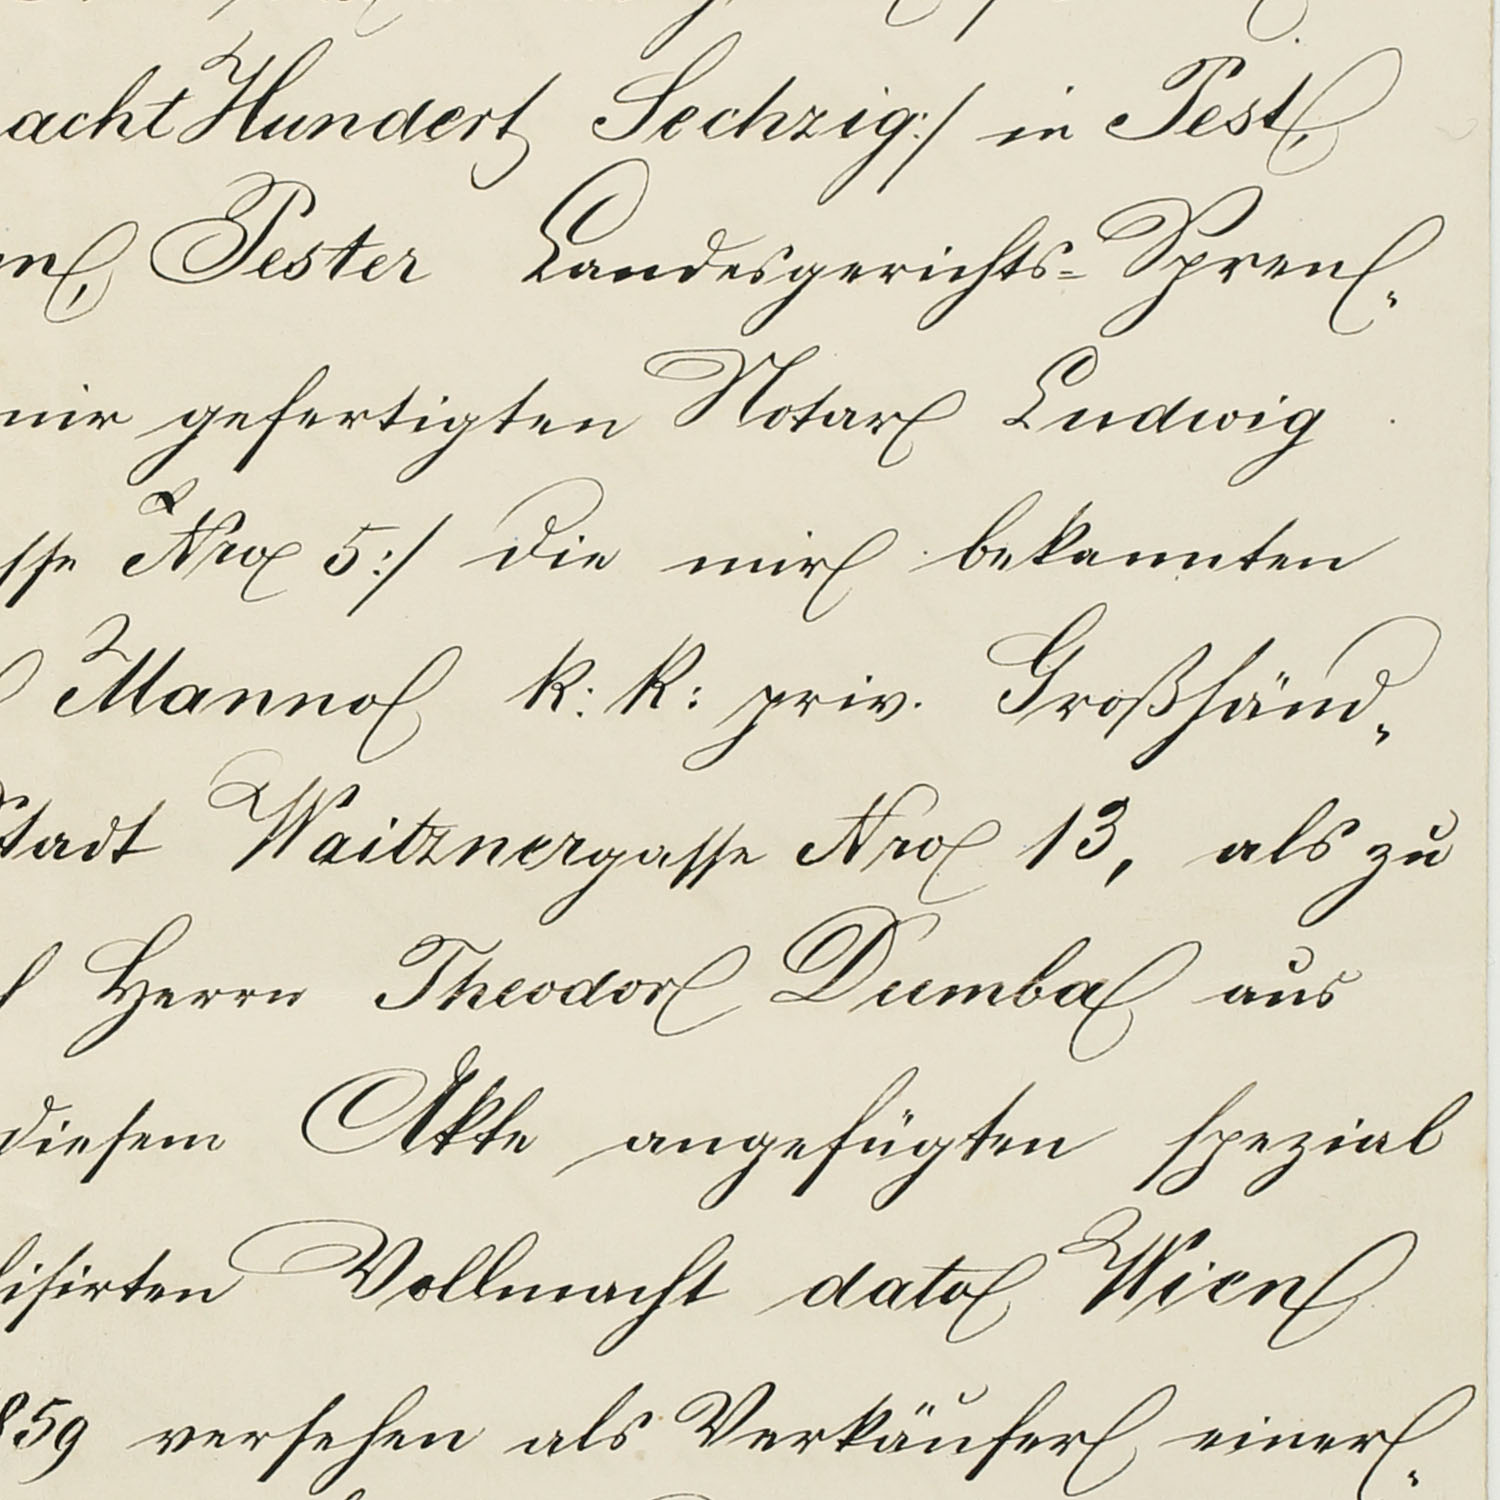 acht Hundert Sechzig:/ in Pest,
n, Pester Landesgerichts-Spren-
mir gefertigten Notar Ludwig
sse Nro 5:/ die mir bekannten
Manno k: k: priv. Großhänd-
Stadt Waitznergasse Nro 13, als zu
Herrn Theodor Dumba aus
diesem Akte angefügten spezial
lisirten Vollmacht dato Wien
859 versehen als Verkäufer einer-